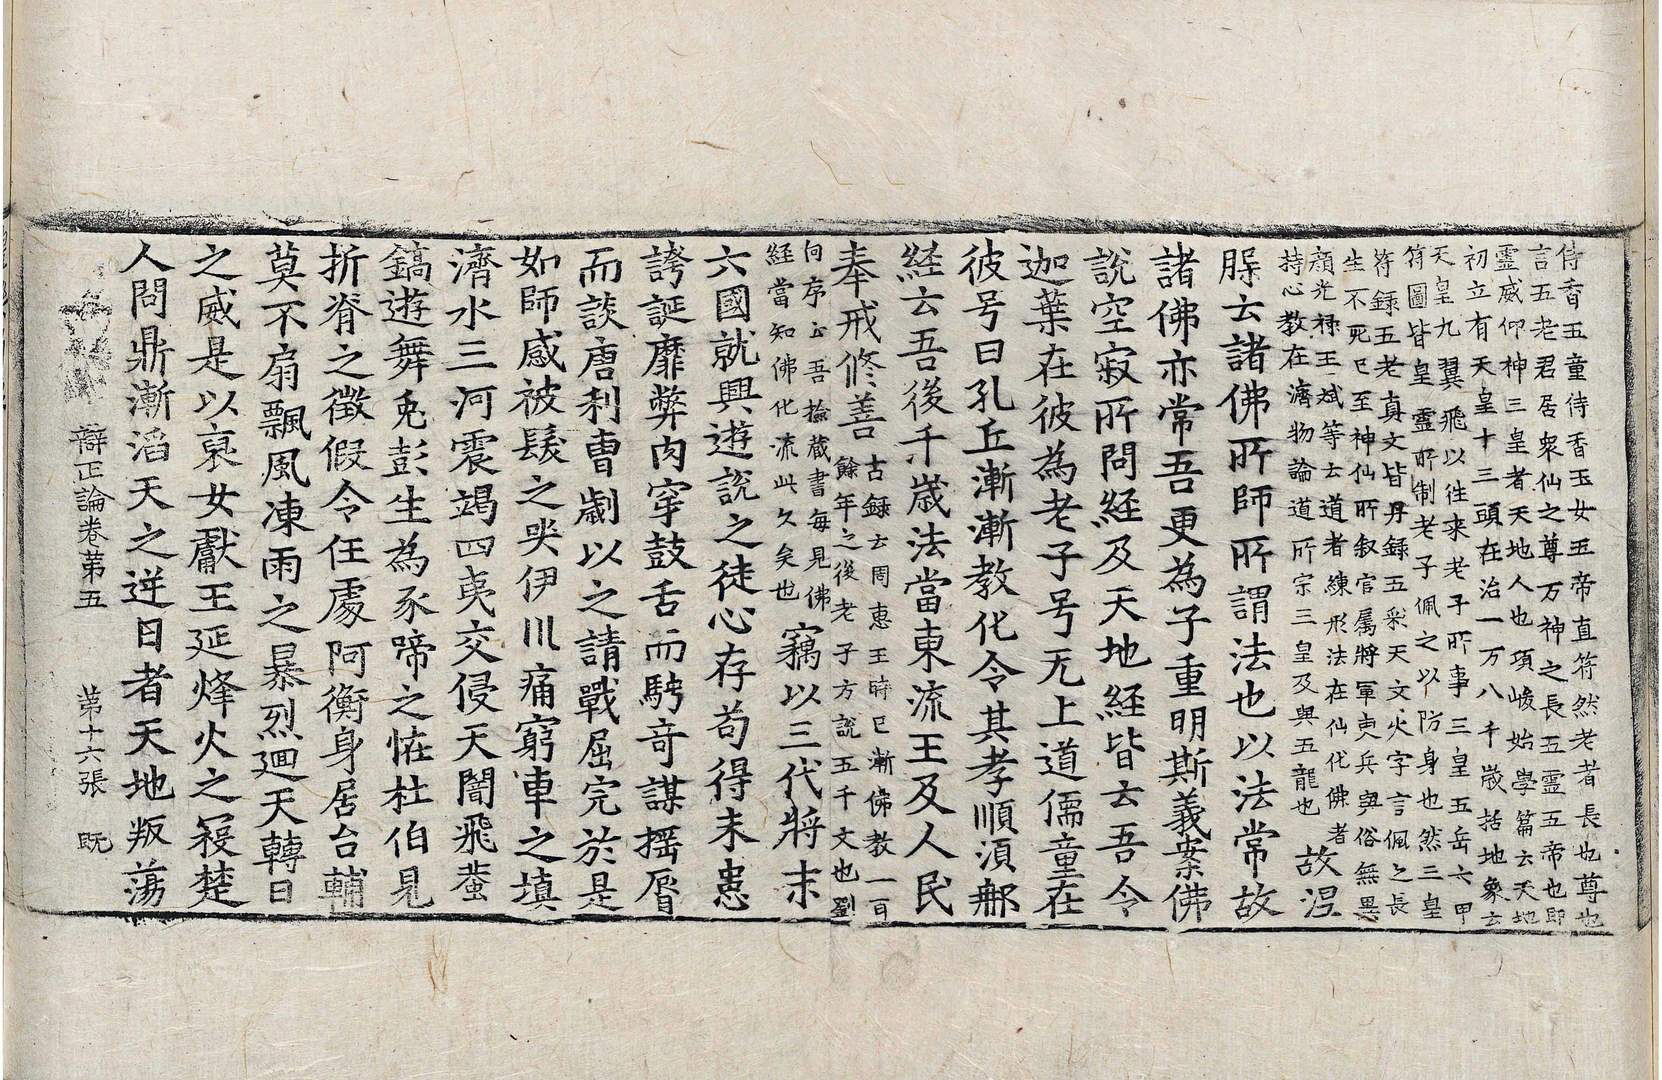 侍香五童侍香玉女五帝直符然老者長也尊也
言五老君居衆仙之尊万神之長五靈五帝也即
靈威仰神三皇者天地人也項峻始學篇云天地
初立有天皇十三頭在治一万八千歲括地象云
天皇九翼飛以往来老子所事三皇五岳六甲
符圖皆皇靈所制老子佩之以防身也然三皇
符録五老真文皆丹録五采天文火字言佩之長
生不死已至神仙所叙官屬將軍吏兵與俗無異
顔光禄王斌等云道者練形法在仙化佛者
持心教在濟物論道所宗三皇及與五龍也
故涅
脲云諸佛所師所謂法也以法常故
諸佛亦常吾更為子重明斯義案佛
說空寂所問経及天地経皆云吾令
迦葉在彼為老子号无上道儒童在
彼号曰孔丘漸漸教化令其孝順須郍
経云吾後千歲法當東流王及人民
奉戒修善
古録云周惠王時已漸佛教一百
餘年之後老子方說五千文也劉
向序云吾撿蔵書每見佛
経當知佛化流此久矣也
竊以三代將末
六國就興遊說之徒心存苟得未患
誇誕靡弊肉穿鼓舌而騁竒謀揺脣
而談唐利曺劌以之請戰屈完於是
如師感被髮之哭伊川痛窮車之填
濟水三河震竭四夷交侵天闇飛蚉
鎬遊舞兎彭生為豕啼之恠杜伯見
折脊之徴假令任處阿衡身居台輔
莫不扇飄風凍雨之暴烈廻天轉日
之威是以裒女獻王延烽火之寇楚
人問鼎漸滔天之逆日者天地叛蕩
辯正論卷苐五　苐十六張　旣